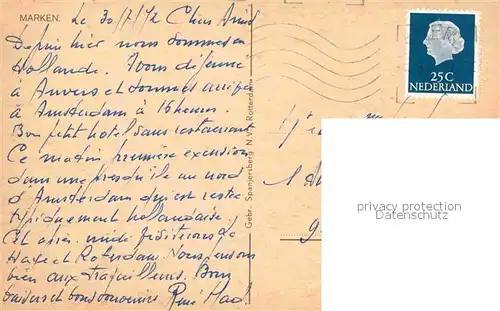 MARKEN.
Le 30/7/72 Chers Amis
Depuis hier nous sommes en
Hollande. Avons déjeuné
à Anvers et sommes arrivés
à Amsterdam à 16 heures.
Bon petit hôtel sans restaurant
Ce matin première excursion
dans une presqu'île au nord
d'Amsterdam qui est restée
typiquement hollandaise.
Cet après-midi visite de
Haye et Rotterdam. Nous pensons
bien aux travailleurs. Bons
baisers et bons souvenirs René
Gebr. Spanjersberg N.V., Rotterdam
25 C
NEDERLAND
privacy protection
Datenschutz